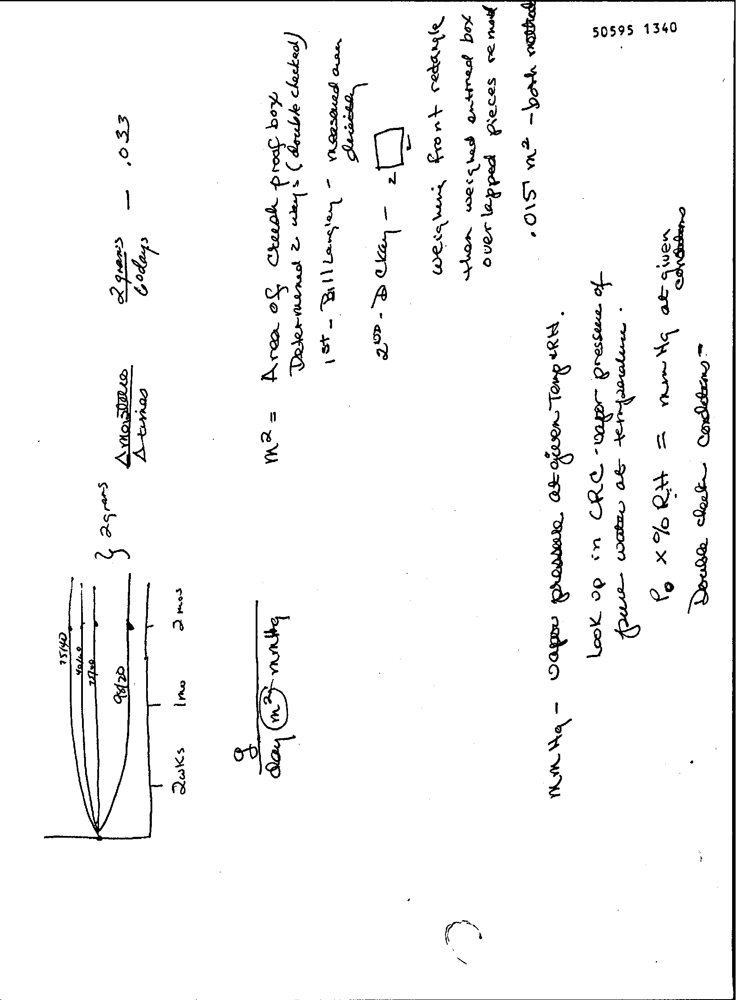 50595 1340
75/40
40/60
75/60
98/20
} 2 grams
2wks 1mo 2 mos
Δ moisture
Δ times
2 grams
60 days
— .033
g
day m² mmHg
m² = Area of Creash proof box
Determined 2 ways (double checked)
1st - Bill Langley - measured area
directly
2nd - D Ckay - 2
weighing front retangle
then weighed entired box
overlapped pieces removed
.015 m² - both methods
mmHg - vapor pressure at given Temp & RH.
Look up in CRC - vapor pressure of
pure water at temperature.
Po x % RH = mm Hg at given
conditions
Double check conditions -